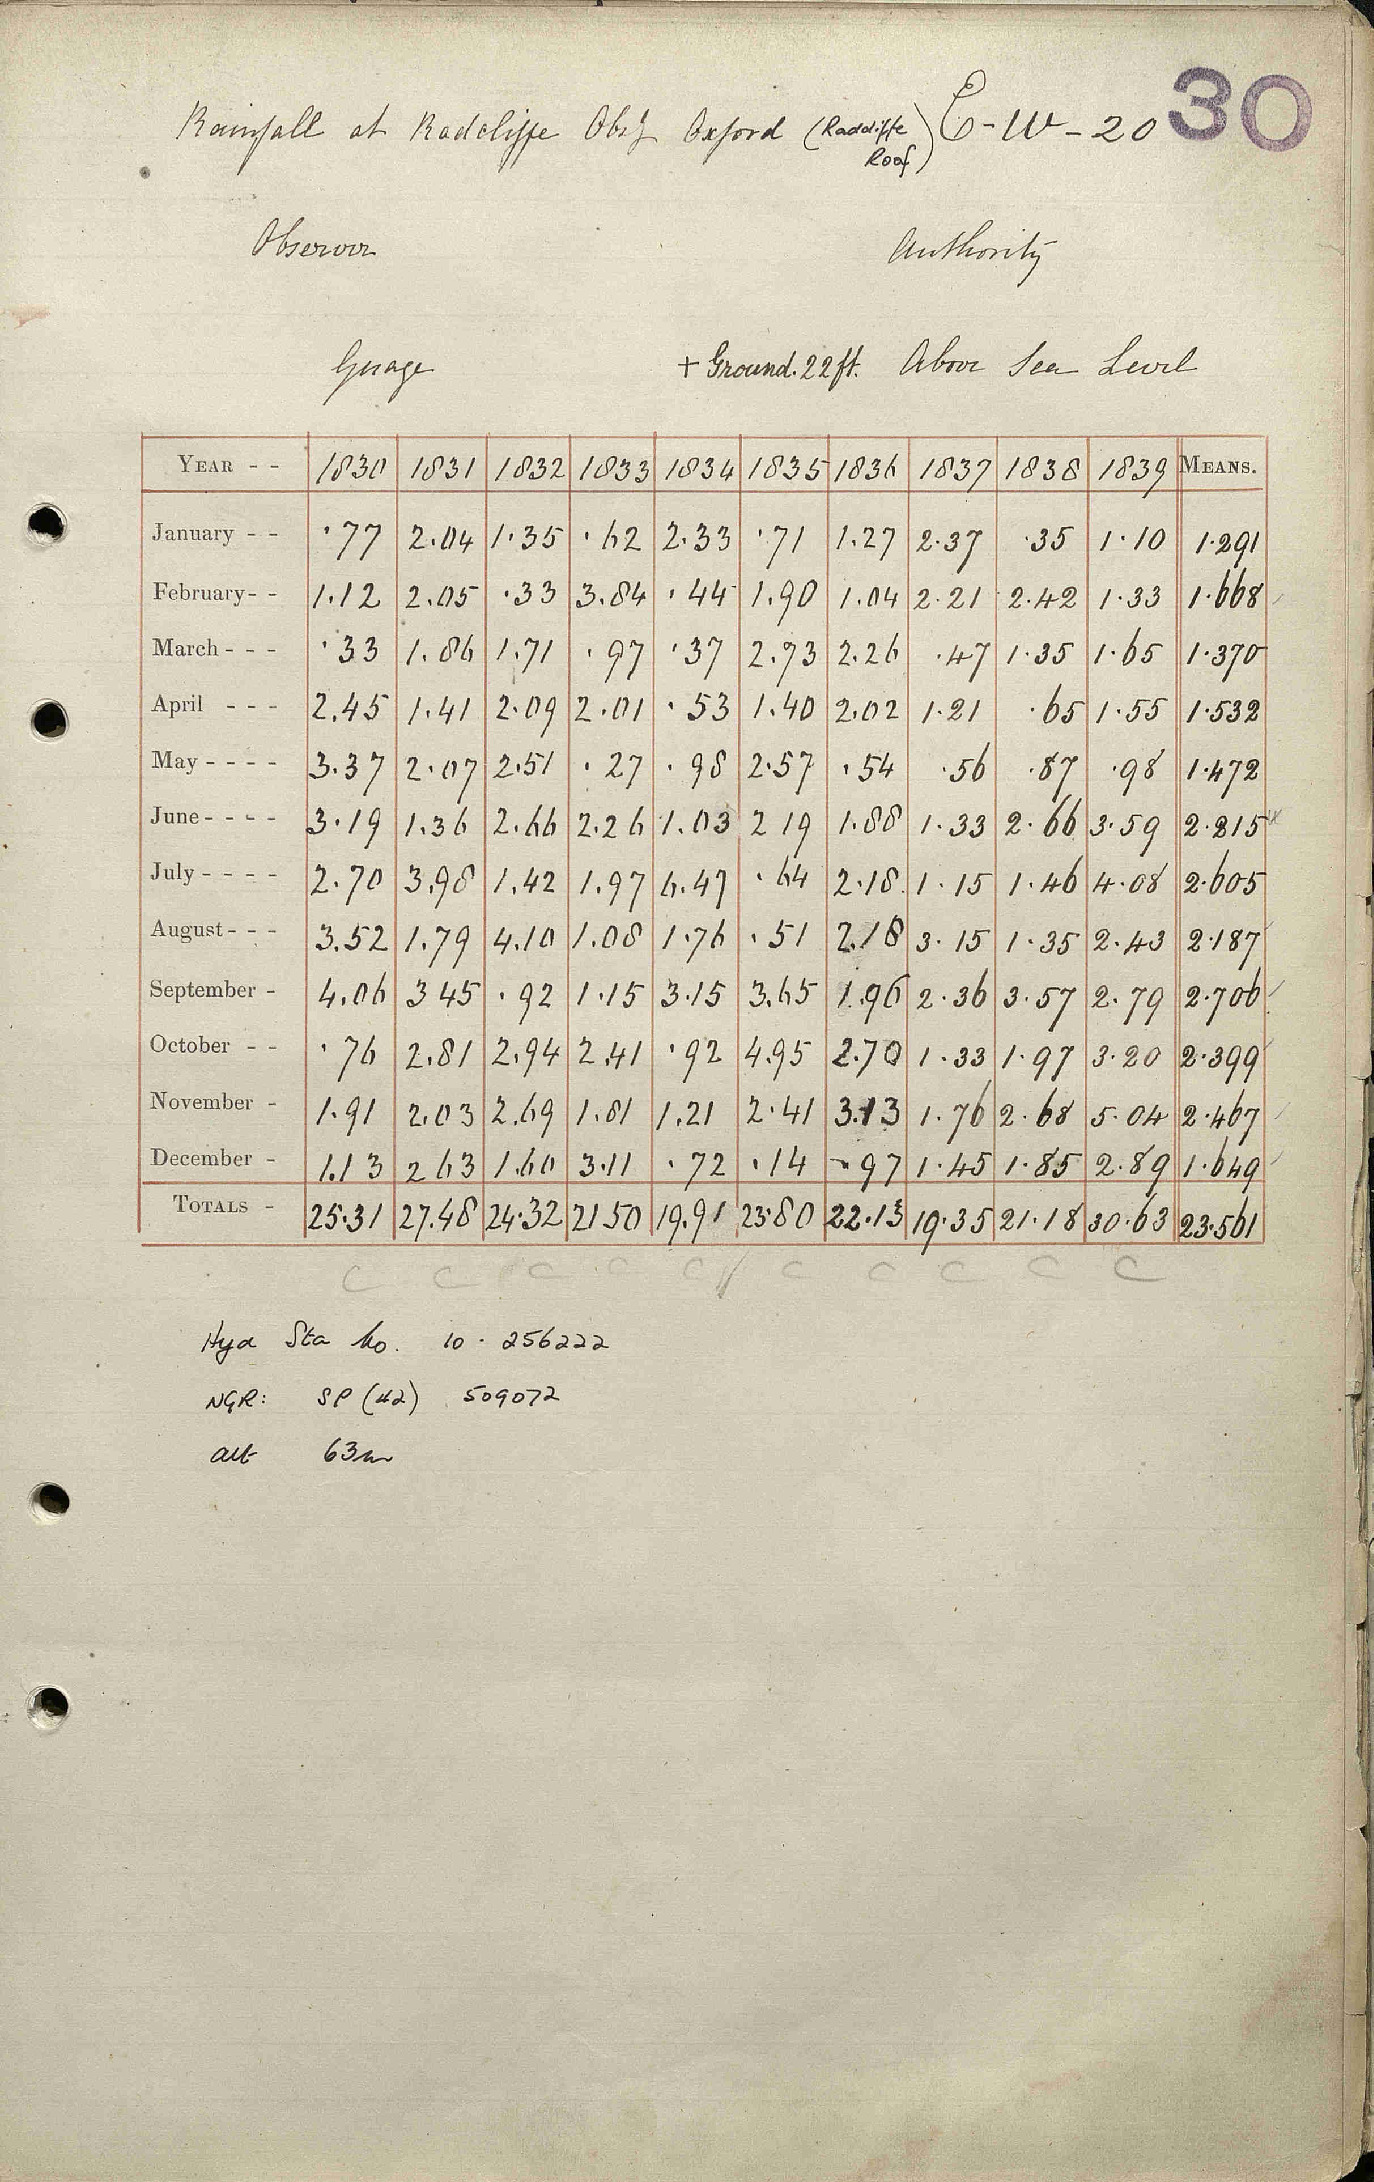 30
Rainfall at Radcliffe Obsy Oxford (Radcliffe Roof) C-W-20
Observer Authority
Guage + Ground. 22 ft. Above Sea Level
YEAR - - 1830 1831 1832 1833 1834 1835 1836 1837 1838 1839 MEANS.
January - - ·77 2.04 1.35 ·62 2.33 ·71 1.27 2.37 ·35 1.10 1.291
February - - 1.12 2.05 ·33 3.84 ·44 1.90 1.04 2.21 2.42 1.33 1.668
March - - - ·33 1.86 1.71 ·97 ·37 2.73 2.26 ·47 1.35 1.65 1.370
April - - - 2.45 1.41 2.09 2.01 ·53 1.40 2.02 1.21 ·65 1.55 1.532
May - - - - 3.37 2.07 2.51 ·27 ·98 2.57 ·54 ·56 ·87 ·98 1.472
June - - - - 3.19 1.36 2.66 2.26 1.03 2 19 1.88 1.33 2.66 3.59 2.215
July - - - - 2.70 3.98 1.42 1.97 6.47 ·64 2.18 1.15 1.46 4.08 2.605
August - - - 3.52 1.79 4.10 1.08 1.76 ·51 2.18 3.15 1.35 2.43 2.187
September - 4.06 3 45 ·92 1.15 3.15 3.65 1.96 2.36 3.57 2.79 2.706
October - - ·76 2.81 2.94 2.41 ·92 4.95 2.70 1.33 1.97 3.20 2.399
November - 1.91 2.03 2.69 1.81 1.21 2.41 3.13 1.76 2.68 5.04 2.467
December - 1.13 2 63 1.60 3.11 ·72 ·14 ·97 1.45 1.85 2.89 1.649
TOTALS - 25.31 27.48 24.32 21 50 19.91 23.80 22.13 19.35 21.18 30.63 23.561
C C C C C C C C C C
Hyd Sta No. 10. 256222
NGR: SP (42) 509072
alt 63m